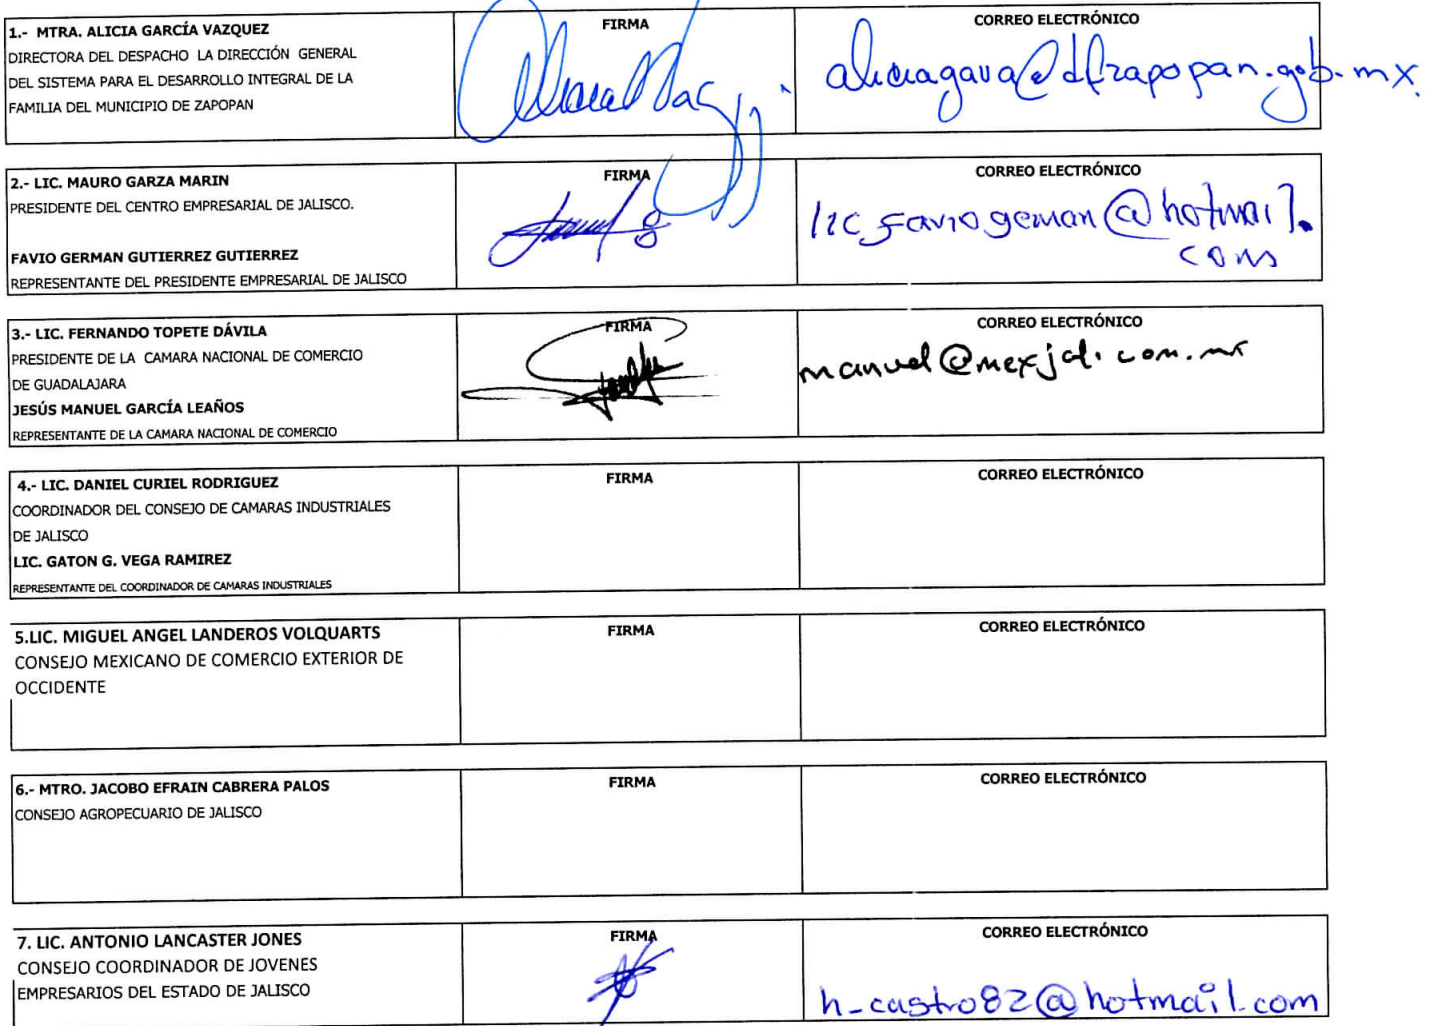 1.- MTRA. ALICIA GARCÍA VAZQUEZ
DIRECTORA DEL DESPACHO LA DIRECCIÓN GENERAL
DEL SISTEMA PARA EL DESARROLLO INTEGRAL DE LA
FAMILIA DEL MUNICIPIO DE ZAPOPAN
FIRMA
CORREO ELECTRÓNICO
aliciagava@difzapopan.gob.mx
2.- LIC. MAURO GARZA MARIN
PRESIDENTE DEL CENTRO EMPRESARIAL DE JALISCO.
FAVIO GERMAN GUTIERREZ GUTIERREZ
REPRESENTANTE DEL PRESIDENTE EMPRESARIAL DE JALISCO
FIRMA
CORREO ELECTRÓNICO
lic_faviogeman@hotmail.
com
3.- LIC. FERNANDO TOPETE DÁVILA
PRESIDENTE DE LA CAMARA NACIONAL DE COMERCIO
DE GUADALAJARA
JESÚS MANUEL GARCÍA LEAÑOS
REPRESENTANTE DE LA CAMARA NACIONAL DE COMERCIO
FIRMA
CORREO ELECTRÓNICO
manuel@mexjal.com.mx
4.- LIC. DANIEL CURIEL RODRIGUEZ
COORDINADOR DEL CONSEJO DE CAMARAS INDUSTRIALES
DE JALISCO
LIC. GATON G. VEGA RAMIREZ
REPRESENTANTE DEL COORDINADOR DE CAMARAS INDUSTRIALES
FIRMA
CORREO ELECTRÓNICO
5.LIC. MIGUEL ANGEL LANDEROS VOLQUARTS
CONSEJO MEXICANO DE COMERCIO EXTERIOR DE
OCCIDENTE
FIRMA
CORREO ELECTRÓNICO
6.- MTRO. JACOBO EFRAIN CABRERA PALOS
CONSEJO AGROPECUARIO DE JALISCO
FIRMA
CORREO ELECTRÓNICO
7. LIC. ANTONIO LANCASTER JONES
CONSEJO COORDINADOR DE JOVENES
EMPRESARIOS DEL ESTADO DE JALISCO
FIRMA
CORREO ELECTRÓNICO
h-castro82@hotmail.com